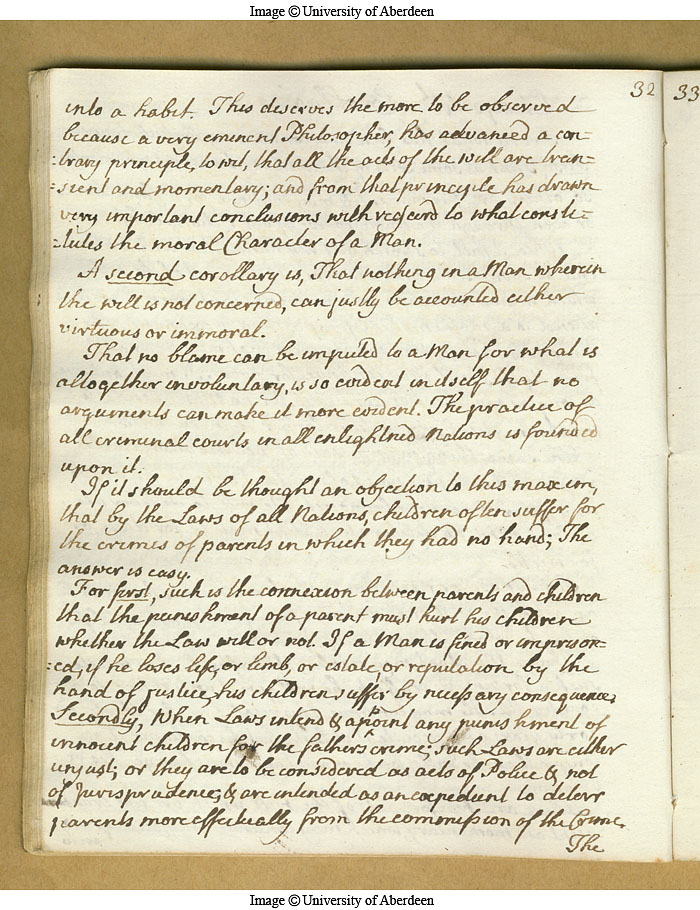 Image © University of Aberdeen
32
33
into a habit. This deserves the more to be observed
because a very eminent Philosopher, has advanced a con=
=trary principle, to wit, that all the acts of the will are tran=
=sient and momentary; and from that principle has drawn
very important conclusions with regard to what consti=
=tutes the moral Character of a Man.
A second corollary is, That nothing in a Man wherein
the will is not concerned, can justly be accounted either
virtuous or immoral.
That no blame can be imputed to a Man for what is
altogether involuntary, is so evident in itself that no
arguments can make it more evident. The practice of
all criminal courts in all enlightned Nations is founded
upon it.
If it should be thought an objection to this maxim,
that by the Laws of all Nations, children often suffer for
the crimes of parents in which they had no hand; The
answer is easy.
For first, such is the connexion between parents and children
that the punishment of a parent must hurt his children
whether the Law will or not. If a Man is fined or imprison=
=ed, if he loses life, or limb, or estate or reputation by the
hand of justice, his children suffer by necessary consequence.
Secondly, When Laws intend & appoint any punishment of
innocent children for the fathers crime; such Laws are either
unjust; or they are to be considered as acts of Police & not
of Jurisprudence; & are intended as an expedient to deterr
parents more effectually from the commission of the Crime.
The
Image © University of Aberdeen